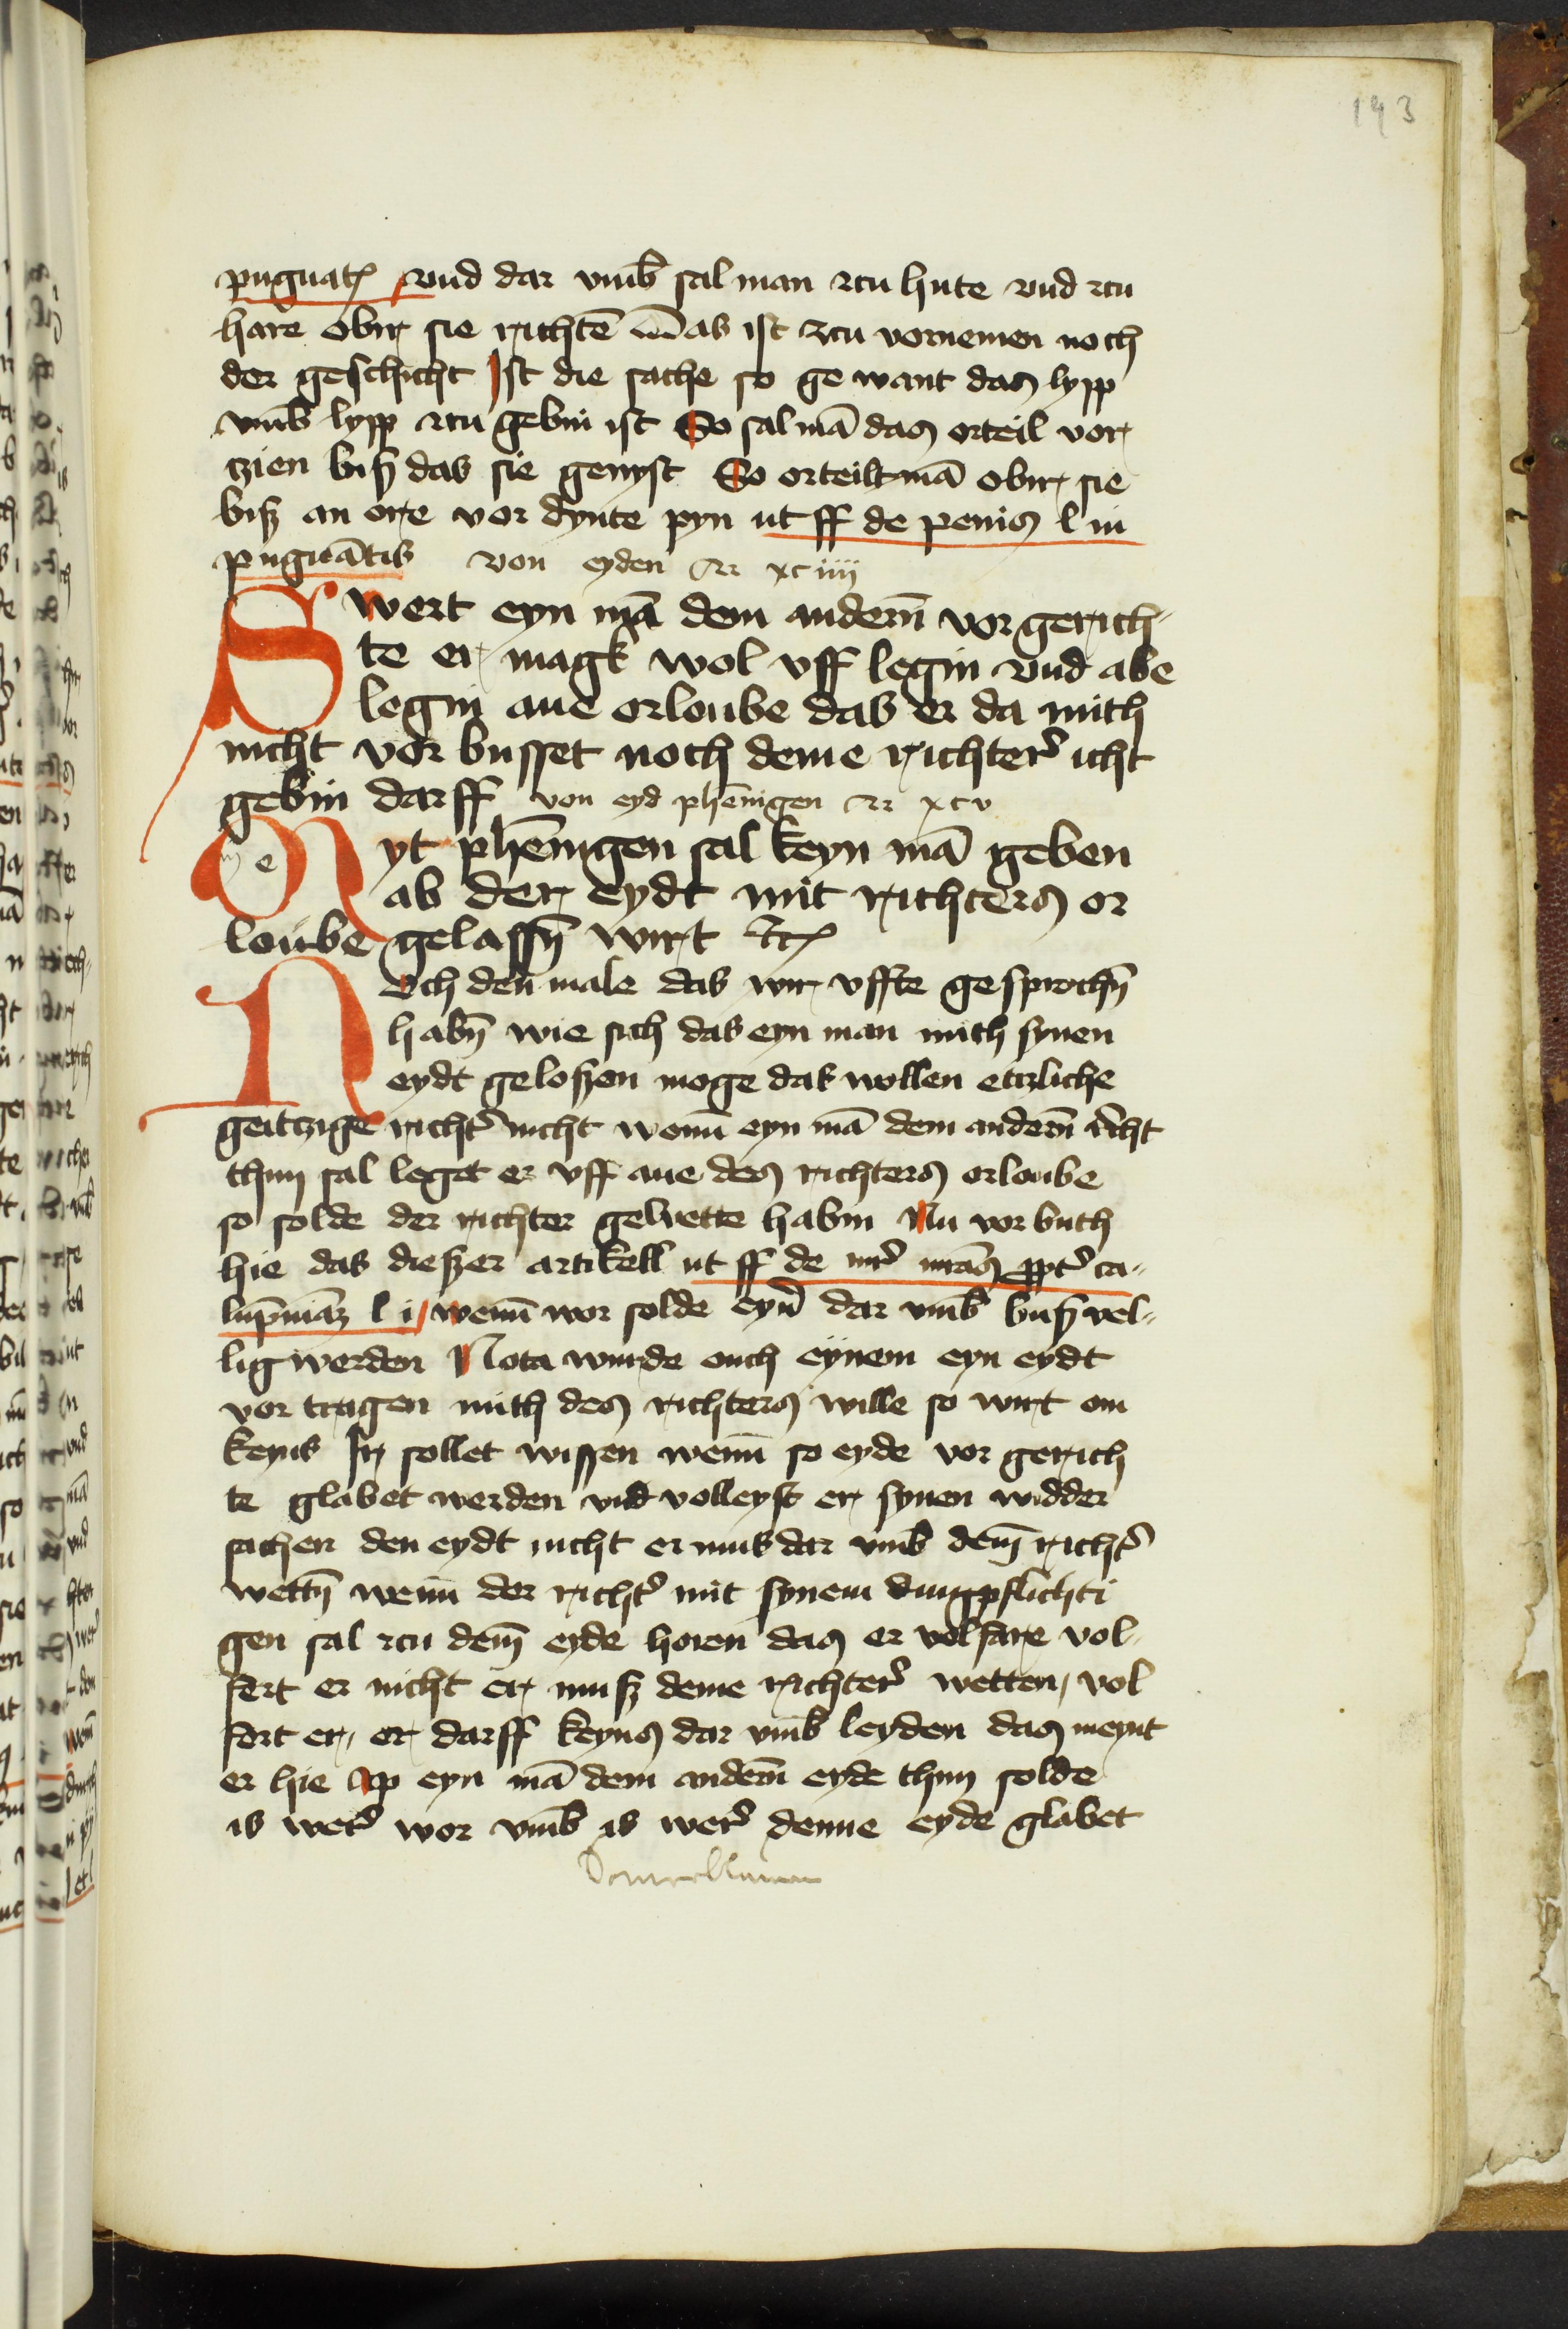 193
pugnat᷑ vnd dar vmb sal man zcu hute vnd zcu
harē obir sie richtē Das ist zcu vornemen noch
der geschicht Ist die sache so ge want das lypp
vmb lypp zcu gebin ist So sal mā das orteil vor
czien biß das sie genyst So orteilt mā obir sie
biß an ore vor dynte pyn ut ff de penis l in
pugnātis von eyden xciiii
Swert eyn mā dem andern̄ vor gerich-
te er magk wol vff legin vnd abe
legin ane orloube das er da mith
nicht vor busset noch deme richter͛ icht
gebin darff von eyd phēnigen xcv
eyt phēnigen sal keyn mā geben
ab der eydt mit richters or
loube gelassn̄ wirt
Noch den male das wir vffte gesprochn̄
habn̄ wie sich das eyn man mith synen
eydt geloßen moge das wollen etzliche
geitzige richt͛ nicht wenn̄ eyn mā dem andern̄ recht
thun sal leget er vff ane des richters orloube
so solde der richter gewette habin Nu vor buth
hie das dießer artikell ut ff de ca-
lūpniāz l i wenn̄ wor solde eyn͛ dar vmb buß vel-
lig werden Nota wurde ouch eynem eyn eydt
vor tragen mith des richters wille so wirt om
keyns Ir sollet wissen wenn̄ so eyde vor gerich
te glabet werden vnd volleyst er synen widder
sachen den eydt nicht er mus dar vmb dem̄ richt͛
wettn̄ wenn̄ der richt͛ mit synem dingpflichti
gen sal zcu dem̄ eyde horen das er volfare vol-
fert er nicht er muß deme richter͛ wetten, vol
fert er, er darff keyns dar vmb leyden das meynt
er hie Ap eyn mā dem andern̄ eyde thun solde
is wer͛ wor vmb is wer͛ denne eyde glabet